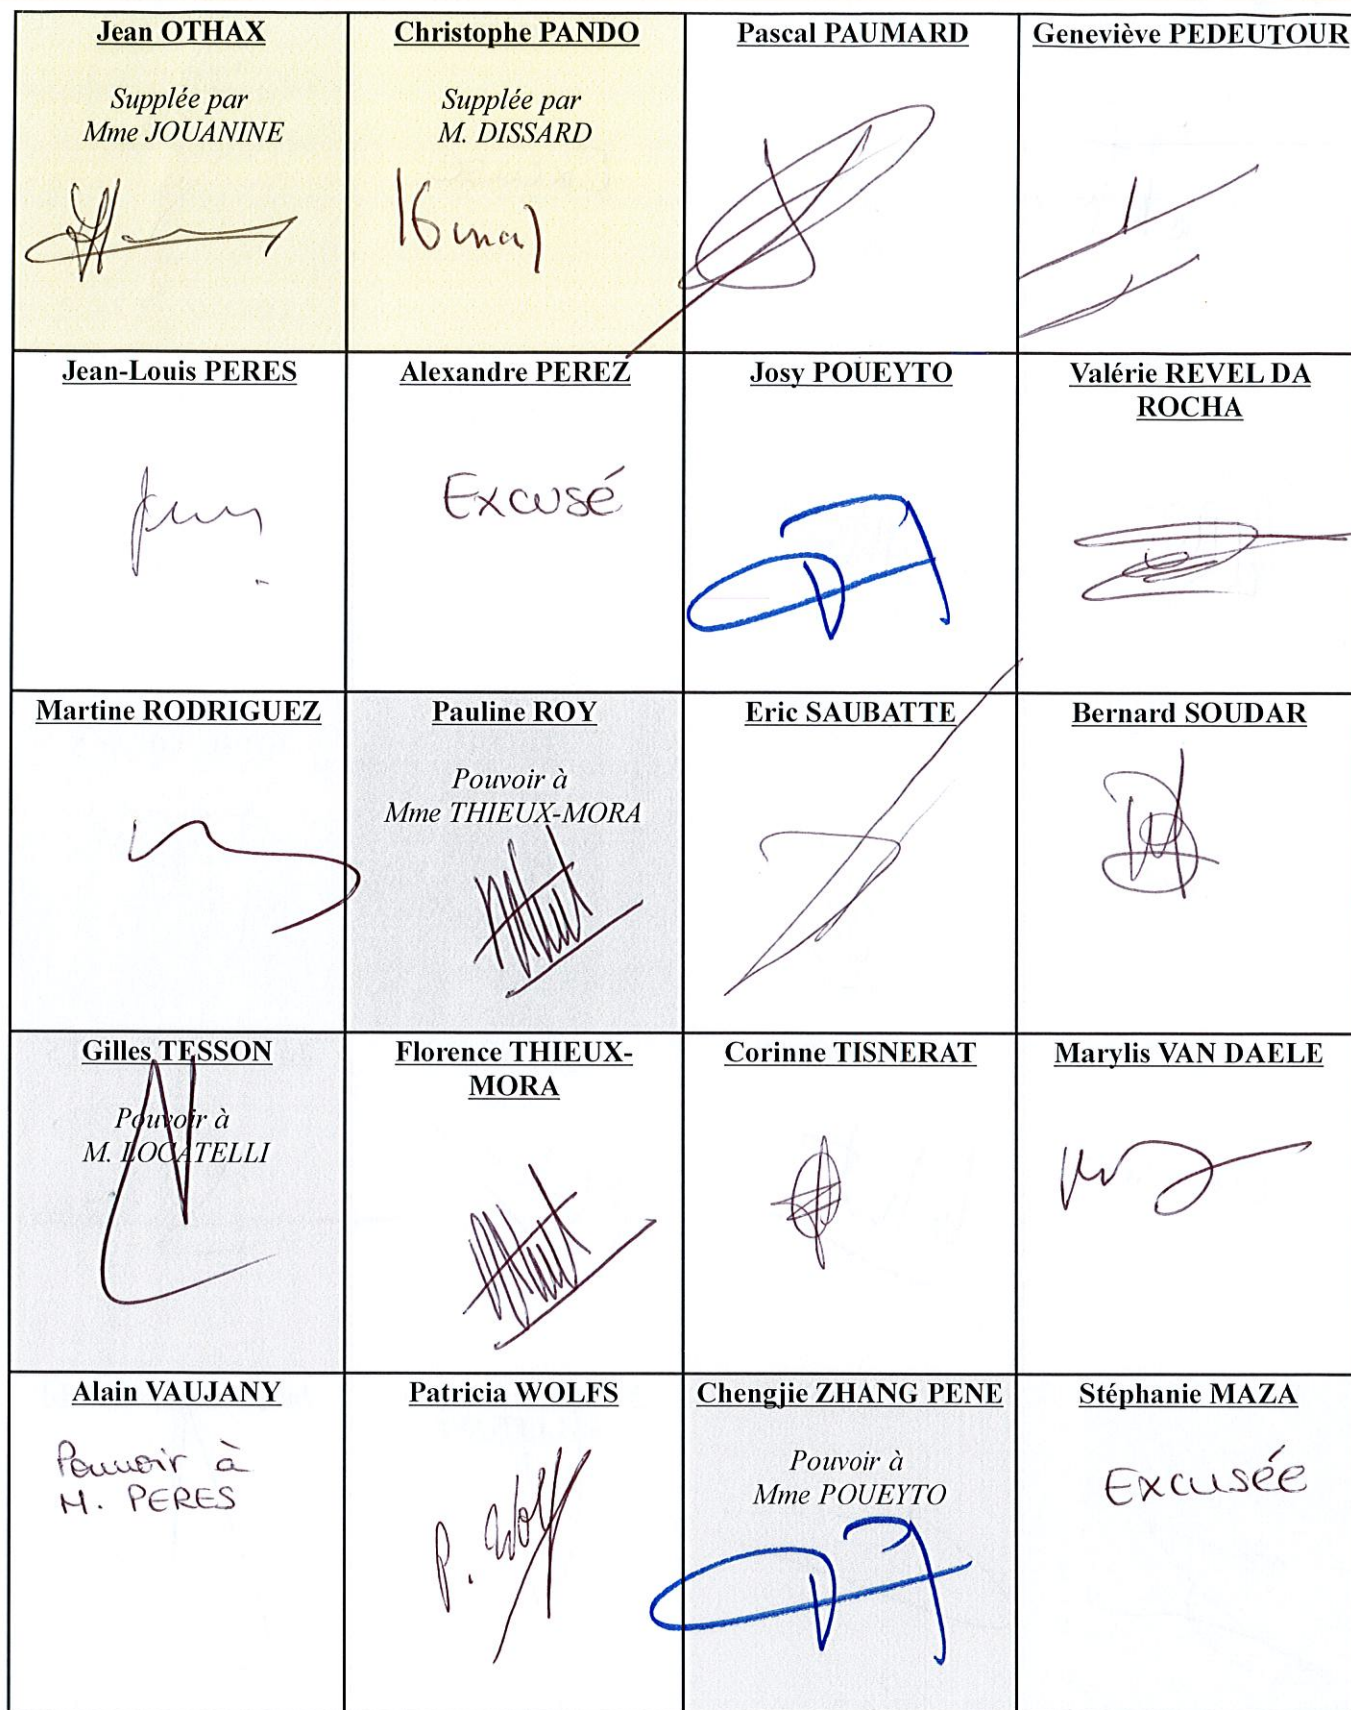 Jean OTHAX
Supplée par
Mme JOUANINE
Christophe PANDO
Supplée par
M. DISSARD
Pascal PAUMARD
Geneviève PEDEUTOUR
Jean-Louis PERES
Alexandre PEREZ
Excusé
Josy POUEYTO
Valérie REVEL DA
ROCHA
Martine RODRIGUEZ
Pauline ROY
Pouvoir à
Mme THIEUX-MORA
Eric SAUBATTE
Bernard SOUDAR
Gilles TESSON
Pouvoir à
M. LOCATELLI
Florence THIEUX-
MORA
Corinne TISNERAT
Marylis VAN DAELE
Alain VAUJANY
Pouvoir à
M. PERES
Patricia WOLFS
P. Wolf
Chengjie ZHANG PENE
Pouvoir à
Mme POUEYTO
Stéphanie MAZA
Excusée